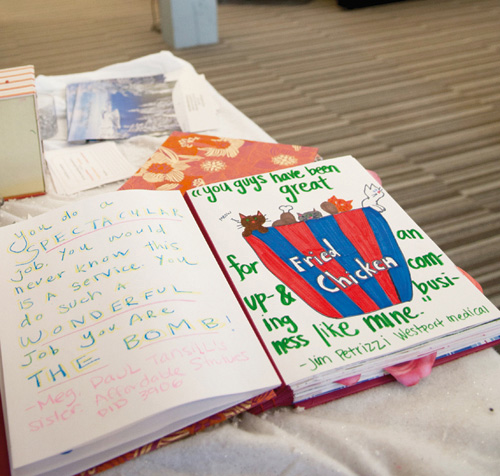 you do a
SPECTACULAR
job. you would
never know this
is a service you
do such a
WONDERFUL
Job you Are
THE BOMB!
-Meg. Paul Tansill's
sister. Affordable Smiles
"you guys have been
great
Fried
Chicken
for
an
up-&
com-
ing
busi-
ness like mine."
-Jim Petrizzi Westport medical